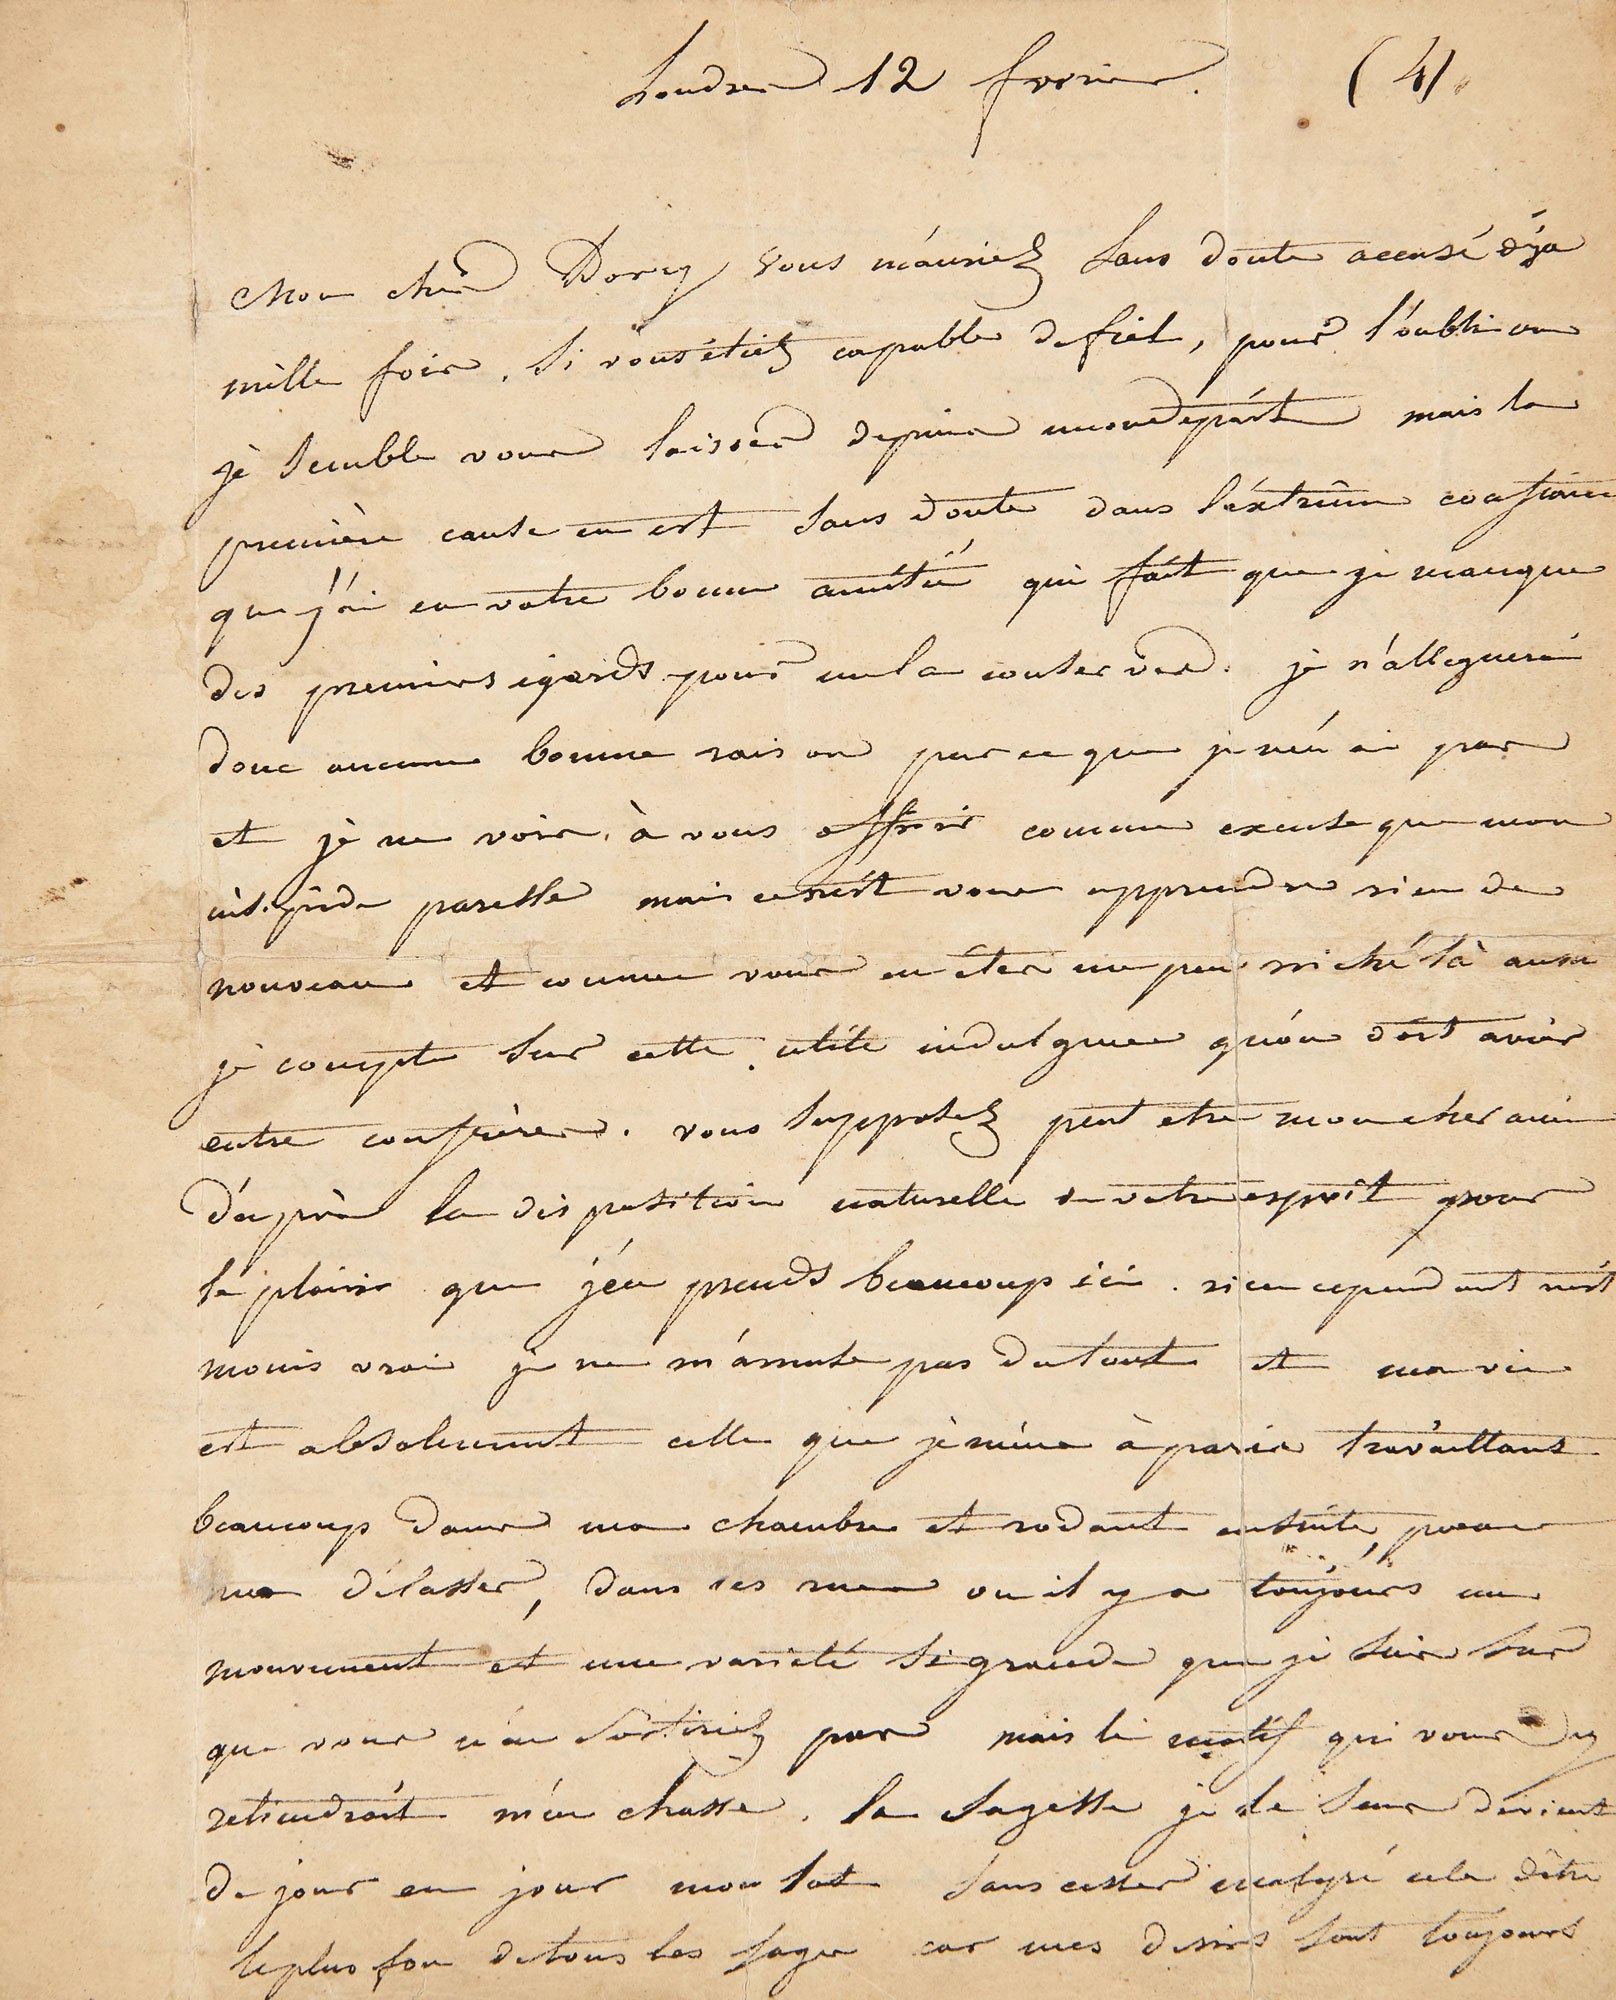 Londres 12 fevrier. (4)
Mon cher Dorcy vous m'auriez sans doute accusé déja
mille fois, si vous étiez capable de fiel, pour l'oubli ou
je semble vous laisser depuis mon départ mais la
première cause en est sans doute dans l'extrême confiance
que j'ai en votre bonne amitié qui fait que je manque
des premiers égards pour me la conserver. je n'alleguerai
donc aucune bonne raison parce que je n'en ai pas
et je ne vois à vous offrir comme excuse que mon
insipide paresse mais ce n'est vous apprendre rien de
nouveau et comme vous en êtes un peu niché là aussi
je compte sur cette utile indulgence qu'on doit avoir
entre confrères. vous supposez peut etre mon cher ami
d'après la disposition naturelle de votre esprit pour
le plaisir que j'en prends beaucoup ici. rien cependant n'est
moins vrai je ne m'amuse pas du tout et ma vie
est absolument celle que je mène à paris travaillant
beaucoup dans ma chambre et rodant ensuite, pour
me délasser, dans les rues ou il y a toujours un
mouvement et une varieté si grande que je suis sur
que vous n'en sortiriez pas mais le motif qui vous y
retiendroit m'en chasse. la sagesse je le sens devient
de jour en jour mon lot sans cesser malgré cela d'être
le plus fou de tous les sages car mes desirs sont toujours